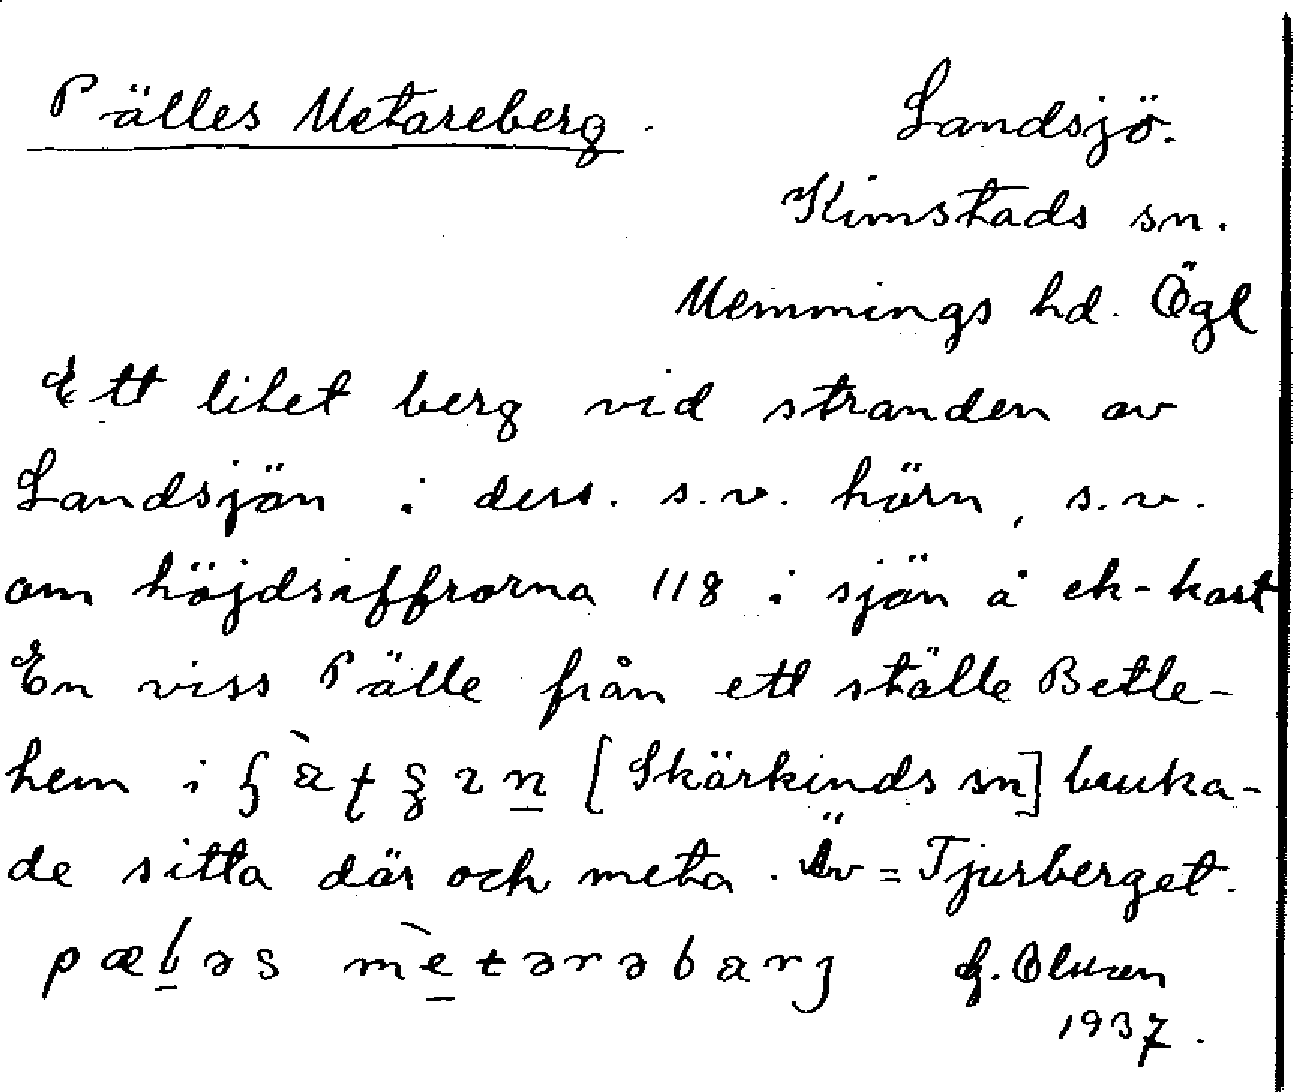 Pälles Metareberg. Landsjö.
Kimstads sn.
Memmings hd. Ögl
Ett litet berg vid stranden av
Landsjön i dess. s.v. hörn, s.v.
om höjdsiffrorna 118 i sjön å ek-kart
En viss Pälle från ett ställe Betle-
hem i [Skärkinds sn] bruka-
de sitta där och meta. Äv = Tjurberget.
1937.